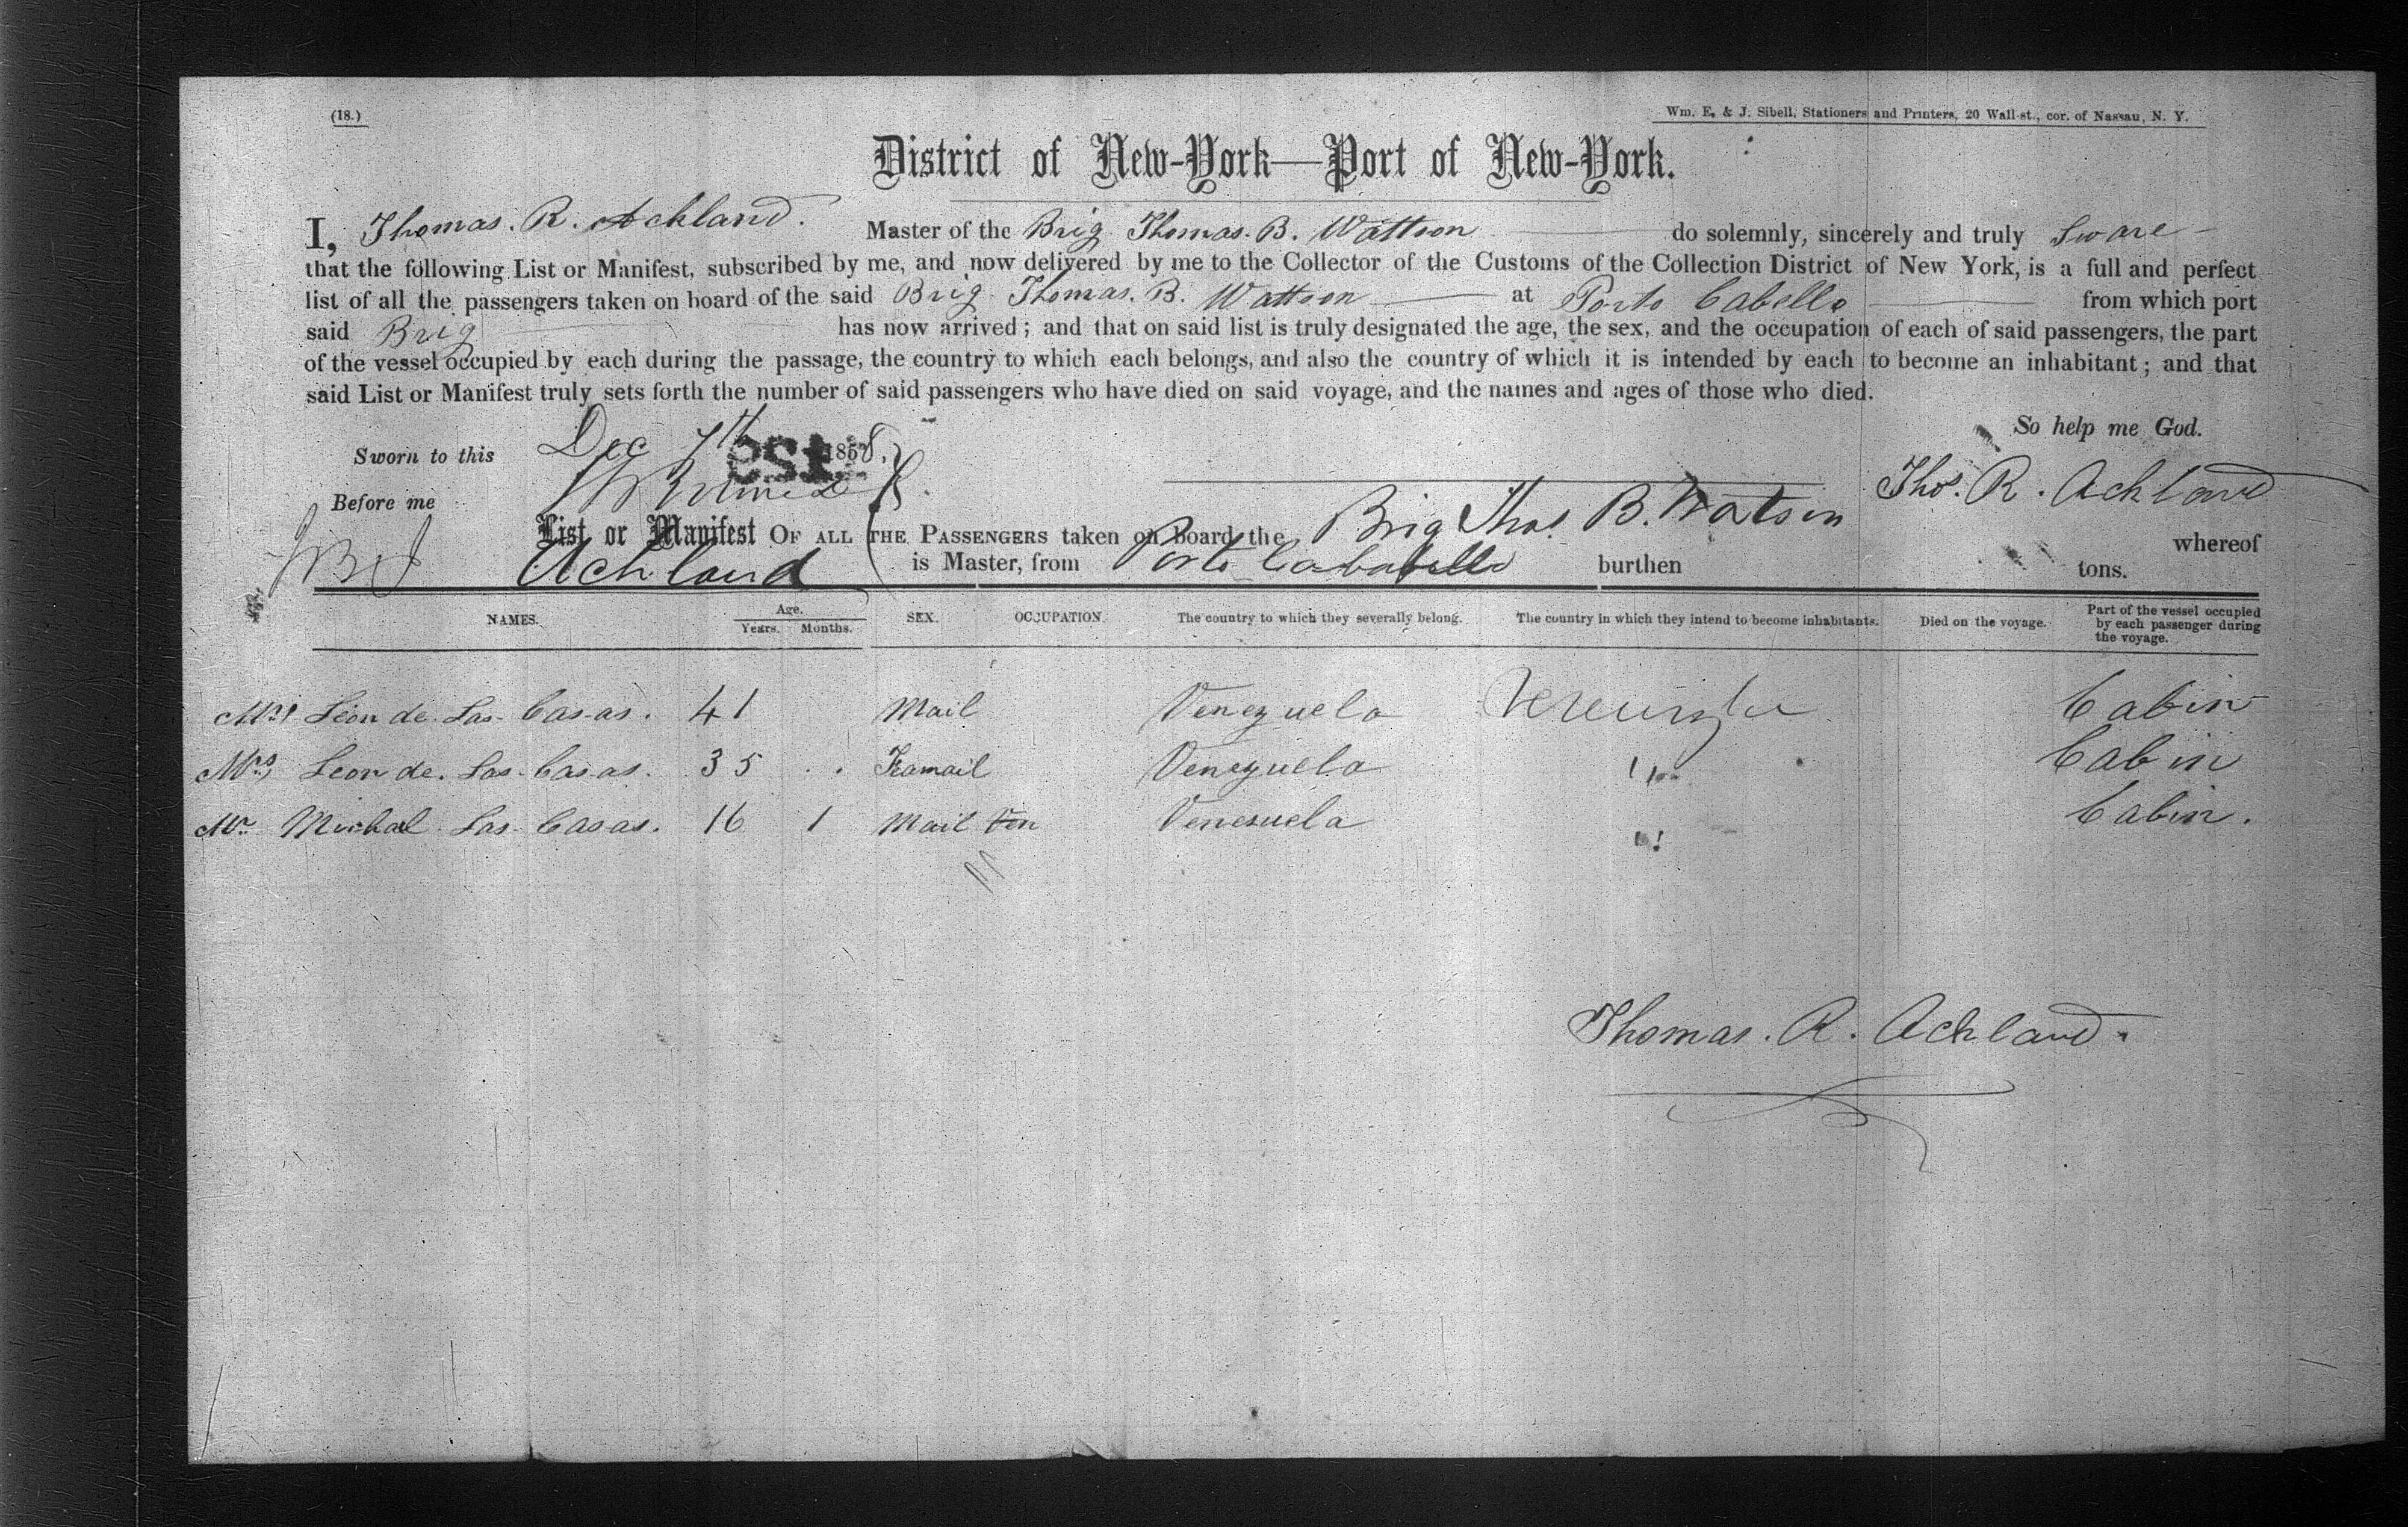 (18.)
Wm. E. & J. Sibell, Stationers and Printers, 20 Wall-st., cor. of Nassau, N. Y.
District of New-York—Port of New-York.
I, Thomas. R. Ackland. Master of the Brig Thomas. B. Wattson do solemnly, sincerely and truly Sware
that the following List or Manifest, subscribed by me, and now delivered by me to the Collector of the Customs of the Collection District of New York, is a full and perfect
list of all the passengers taken on board of the said Brig Thomas. B. Wattson at Porto Cabello from which port
said Brig has now arrived; and that on said list is truly designated the age, the sex, and the occupation of each of said passengers, the part
of the vessel occupied by each during the passage, the country to which each belongs, and also the country of which it is intended by each to become an inhabitant; and that
said List or Manifest truly sets forth the number of said passengers who have died on said voyage, and the names and ages of those who died.
So help me God.
Sworn to this Dec 7th 1858,
est.
Before me
Thos. R. Ackland
List or Manifest OF ALL THE PASSENGERS taken on board the Brig Thos. B. Watson whereof
Ackland is Master, from Porto Cababello burthen tons.
NAMES. Age. Years. Months. SEX. OCCUPATION. The country to which they severally belong. The country in which they intend to become inhabitants. Died on the voyage. Part of the vessel occupied by each passenger during the voyage.
Mr Leon de Las Casas. 41 Mail Venezuela Cabin
Mrs Leon de. Las Casas. 35 Feamail Venezuela " Cabin
Mr Michael Las Casas. 16 1 Mail Ven Venesuela " Cabin.
Thomas. R. Ackland.